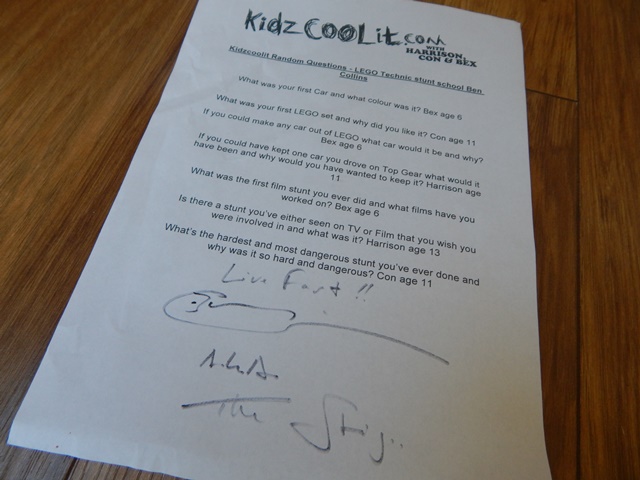 KidzCOOLit.com
WITH
HARRISON,
CON & BEX
Kidzcoolit Random Questions - LEGO Technic stunt school Ben
Collins
What was your first Car and what colour was it? Bex age 6
What was your first LEGO set and why did you like it? Con age 11
If you could make any car out of LEGO what car would it be and why?
Bex age 6
If you could have kept one car you drove on Top Gear what would it
have been and why would you have wanted to keep it? Harrison age
11
What was the first film stunt you ever did and what films have you
worked on? Bex age 6
Is there a stunt you've either seen on TV or Film that you wish you
were involved in and what was it? Harrison age 13
What's the hardest and most dangerous stunt you've ever done and
why was it so hard and dangerous? Con age 11
Live Fast!!
A.k.A.
The Stig..